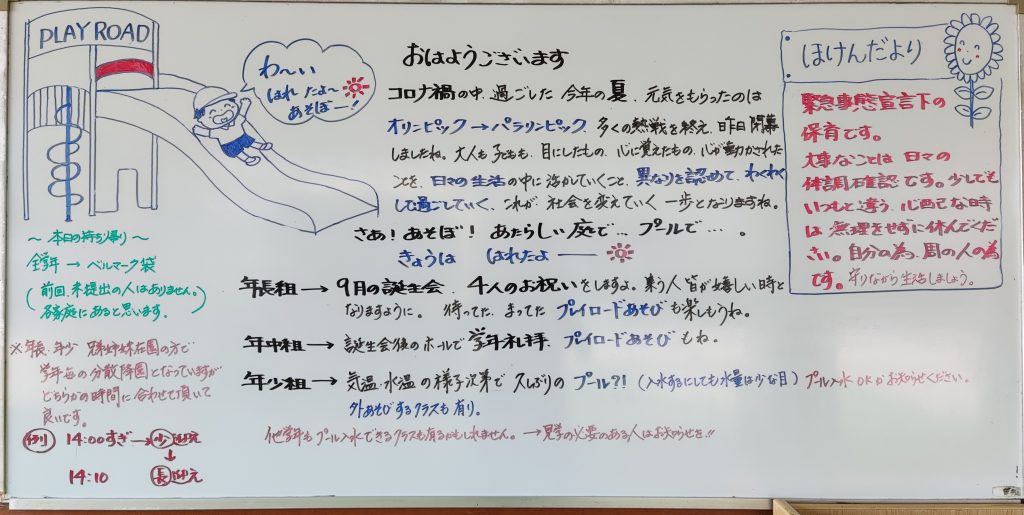 PLAY ROAD
わ〜い
はれたよ〜
あそぼー！
おはようございます
コロナ禍の中、過ごした今年の夏、元気をもらったのは
オリンピック→パラリンピック、多くの熱戦を終え、昨日閉幕
しましたね。大人も子どもも、目にしたもの、心に覚えたもの、心が動かされた
ことを、日々の生活の中に活かしていくこと、異なりを認めて、わくわく
して過ごしていく、これが、社会を変えていく一歩となりますね。
さあ！あそぼ！あたらしい庭で…プールで…。
きょうは はれたよ――
年長組→9月の誕生会、4人のお祝いをしますよ。集う人皆が嬉しい時と
なりますように。待ってた、まってたプレイロードあそびも楽しもうね。
年中組→誕生会後のホールで学年礼拝、プイロードあそびもね。
年少組→気温・水温の様子次第で久しぶりのプール?!(入水するにしても水量は少な目)プール入水OKかお知らせください。
外あそびするクラスも有り。
他学年もプール入水できるクラスも有るかもしれません。→見学の必要のある人はお知らせを!!
ほけんだより
緊急事態宣言下の
保育です。
大事なことは日々の
体調確認です。少しでも
いつもと違う、心配な時
は無理をせずに休んでくだ
さい。自分の為、周の人の為
です。守りながら生活しましょう。
〜本日の持ち帰り〜
全学年→ベルマーク袋
(前回、未提出の人はありません。
各家庭にあると思います。)
※年長、年少 兄弟姉妹在園の方で
学年毎の分散降園となっていますが
どちらかの時間に合わせて頂いて
良いです。
例 14:00すぎ→少迎え
↓
14:10 長迎え